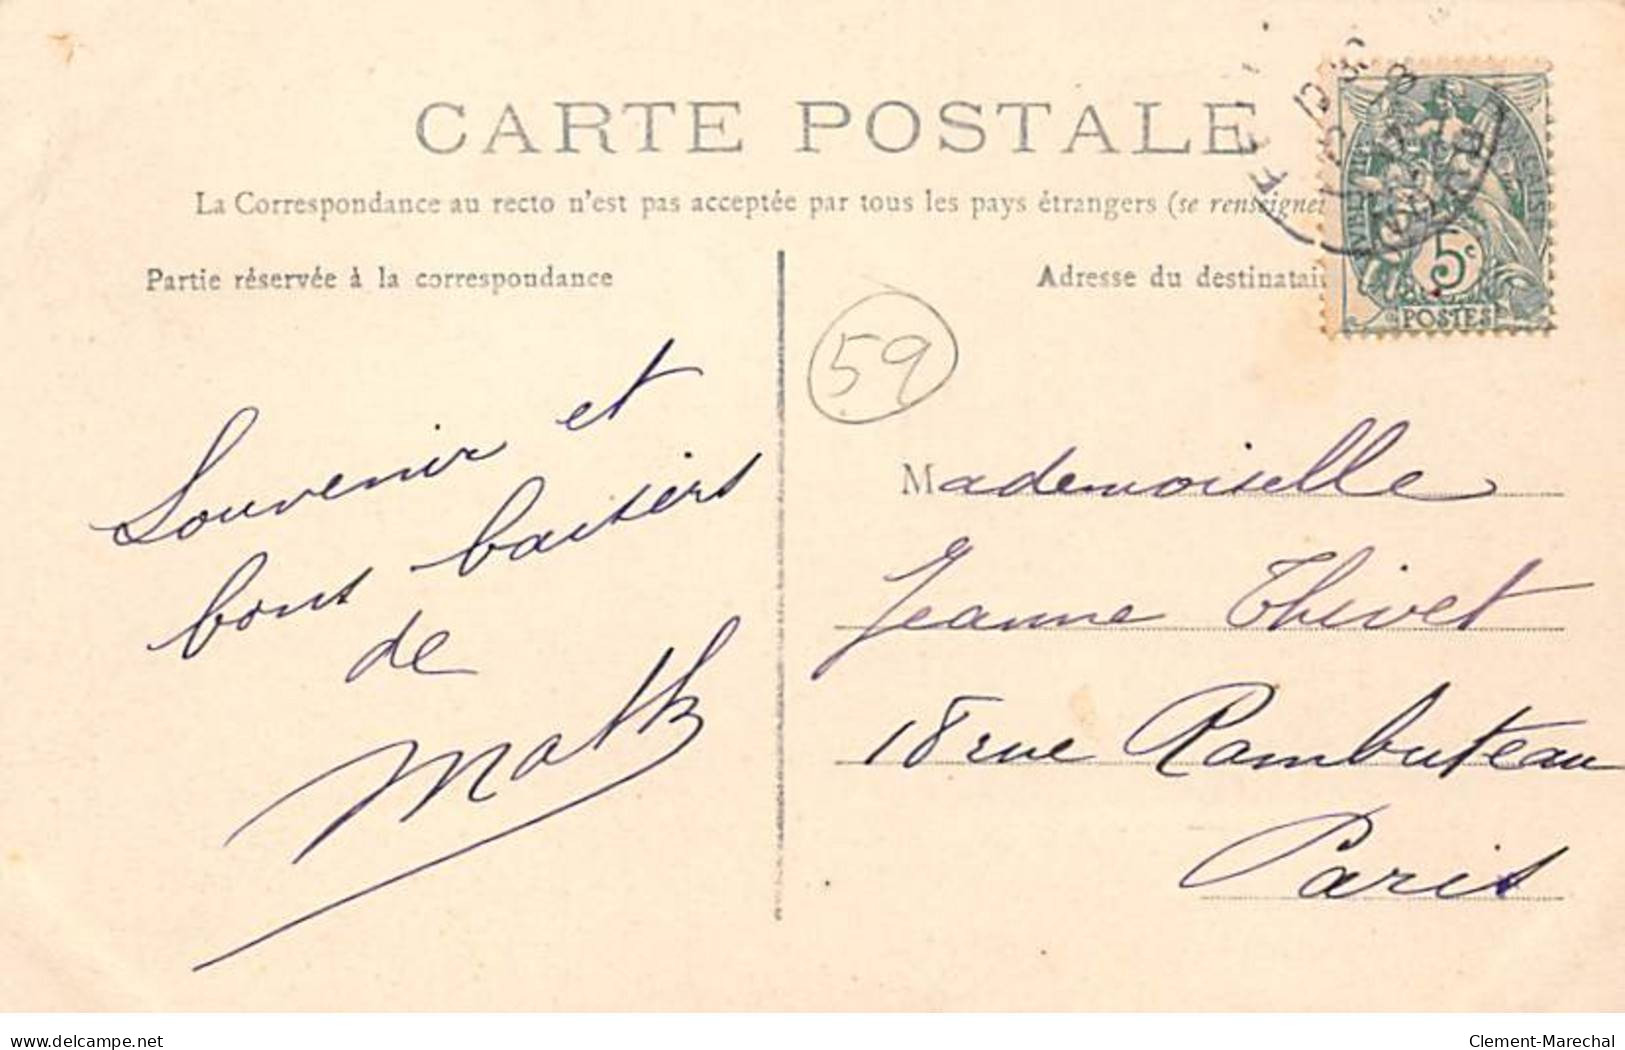 CARTE POSTALE
La Correspondance au recto n'est pas acceptée par tous les pays étrangers (se renseigner
Partie réservée à la correspondance
Adresse du destinatai
5c
POSTES
59
Souvenir et
bons baisers
de
Math
Mademoiselle
Jeanne Thivet
18 rue Rambuteau
Paris
www.delcampe.net
Clement-Marechal